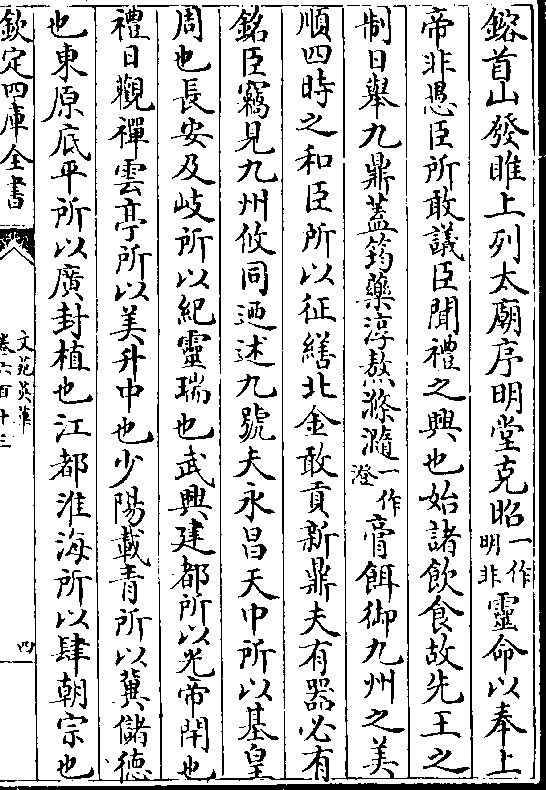 鎔首山發睢上列太廟序明堂克昭一作明非靈命以奉上
帝非愚臣所敢議臣聞禮之興也始諸飲食故先王之
制日舉九鼎蓋筠藥淳熬滫瀡一作澄膏餌御九州之美
順四時之和臣所以征繕北金敢貢新鼎夫有器必有
銘臣竊見九州攸同迺述九號夫永昌天中所以基皇
周也長安及岐所以紀靈瑞也武興建都所以光帝閈也
禮日觀禪雲亭所以美升中也少陽載青所以冀儲德
也東原底平所以廣封植也江都淮海所以肆朝宗也
欽定四庫全書
文苑英華
卷六百十三
四